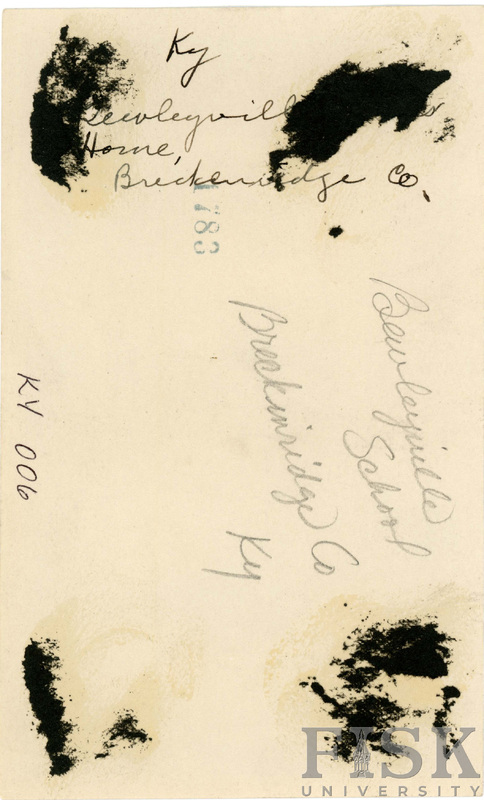 Ky
Bewleyville
Home,
Breckenridge Co.
1783
Bewleyville
School
Breckinridge Co
Ky
KY 006
FISK
UNIVERSITY